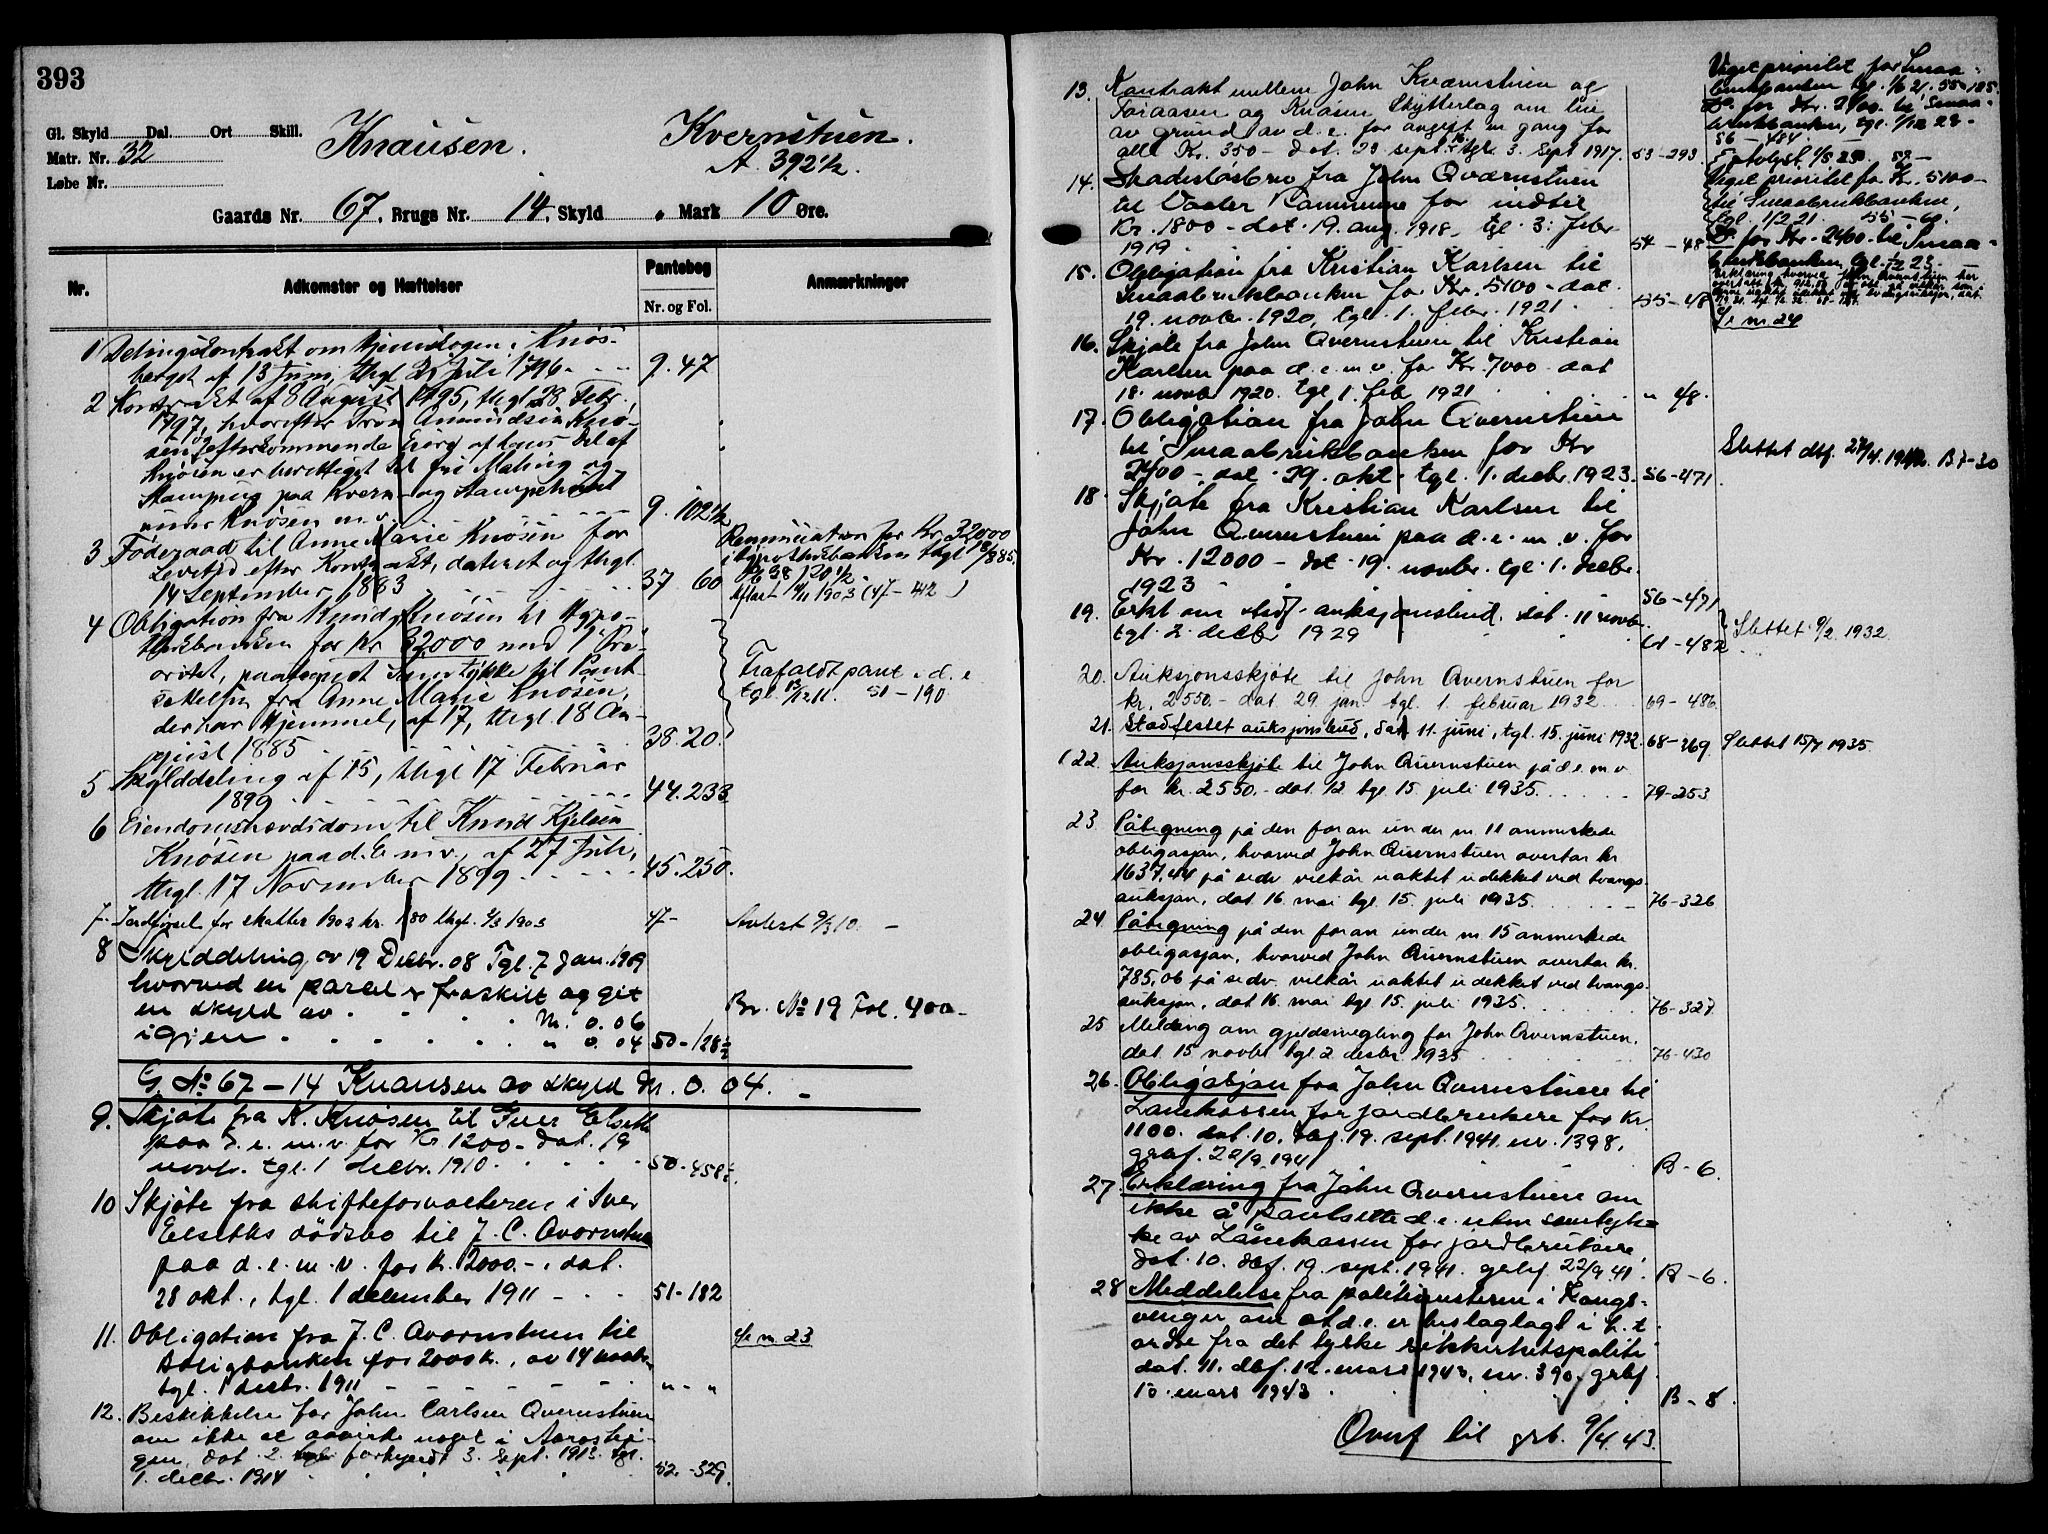 393
Gl. Skyld Dal. Ort Skill.
Matr. Nr. 32
Løbe Nr.
Knausen. Kvernstuen.
A. 392½.
Gaards Nr. 67, Brugs Nr. 14, Skyld " Mark 10 Øre.
Nr. Adkomster og Hæftelser Pantebog Nr. og Fol. Anmærkninger
1 Delingskontrakt om Hjemskogen i Knøs-
berget af 13 Juni, thgl. Juli 1796 9. 47
2 Kontrakt af 8 August 1795, thgl 28 Febr.
1797, hvorefter Tron Amundsen Knø-
sen og efterkommende Eiere af hans Del af
Knøsen er berettiget til fri Maling og
Stampning paa Kvern- og Stampehuset
under Knøsen m.v. 9. 102½
3 Føderaad til Anne Marie Knøsen for
Levetid efter Kontrakt, dateret og thgl.
14 September 1883 37 60
Renunciation for Kr. 32000
i Hypothekbanken thgl 18/8 85.
Pb 38 120½
Aflæst 11/11 1903 (47 - 412)
4 Obligation fra Knud Knøsen til Hypo-
thekbanken for Kr 32,000 med 1 Pri-
oritet, paategnet Samtykke til Pant-
sættelsen fra Anne Marie Knøsen,
der har Hjemmel, af 17, thgl. 18 Au-
gust 1885 38. 20.
Frafaldt pant i d. e.
tgl. 13/12 11. 51 - 190
5 Skylddeling af 15, thgl 17 Februar
1899 44. 233
6 Eiendomshævdsdom til Knud Kjelsen
Knøsen paa d. E. m.v., af 27 Juli,
thgl. 17 November 1899 45. 250.
7. Jordførsel for skatter 1902 kr. 1.80 thgl. 1903 47- Avlest 9/3 10. -
8 Skylddeling av 19 Decbr. 08 Tgl. 7 Jan. 1909
hvorved en parcel er fraskilt og git
en skyld av M. 0. 06 Br. No 19 Fol. 400 -
igjen " 0. 04 50 - 128½
G. No 67 - 14 Knausen av skyld M. 0. 04. -
9. Skjøte fra K. Knøsen til Iver Elseth
paa d. e. m. v. for Kr 1200 - dat. 19
novbr. tgl. 1 decbr. 1910 50 - 458½.
10 Skjøte fra skifteforvalteren i Iver
Elseths dødsbo til J. C. Qvernstuen
paa d. e. m. v. for kr. 2000. -, dat.
28 okt., tgl. 1 december 1911 - 51 - 182
11. Obligation fra J. C. Qvernstuen til
Boligbanken for 2000 k., av 14 novbr.
tgl. 1 decbr. 1911 " - " Se nr 23
12. Beskikkelse for John Carlsen Qvernstuen
om ikke at avvirke noget i
dat. 2 forkyndt 3. Sept. 1913. tgl.
1. decbr. 1914 52. - 329.
13. Kontrakt mellem John Kvernstuen og
Foraasen og Knøsen Skytterlag om leie
av grund av d. e. for avgift en gang for
alle Kr. 350 - dat. 29 sept. tgl. 3. Sept 1917. 53 - 293
14. Skadesløsbrev fra John Qværnstuen
til Vaaler Commune for indtil
Kr. 1800 - dat. 19. aug. 1918, tgl. 3. febr
1919 54 - 48
15. Obligation fra Kristian Karlsen til
Smaabrukbanken for Kr. 5100 - dat.
19. novbr. 1920, tgl. 1. febr. 1921 55 - 48
16. Skjøte fra John Qvernstuen til Kristian
Karlsen paa d. e. m. v. for Kr. 7000 - dat
18. novbr 1920. tgl 1. feb 1921 " 48.
17. Obligation fra John Qvernstuen
til Smaabrukbanken for Kr
2400 - dat. 29. okt. tgl. 1. decbr. 1923. 56 - 471
Slettet dbf. 27/4. 1942. B 7 - 30
18 Skjøte fra Kristian Karlsen til
John Qvernstuen paa d. e. m. v. for
Kr. 12000 - dat. 19. novbr. tgl. 1. decbr.
1923 56 - 471
19. Erkl om stadf. auksjonsbud, dat. 11 novbr
tgl. 2. decbr 1929 61 - 482
Slettet 9/2. 1932.
20. Auksjonsskjøte til John Qvernstuen for
kr. 2550. - dat. 29. jan. tgl. 1. februar 1932 69 - 486
21. Stadfestet auksjonsbud, dat. 11. juni, tgl. 15. juni 1932. 68 - 369. Slettet 15/7 1935.
22. Auksjonsskjøte til John Qvernstuen på d. e. m. v
for kr. 2550. - dat. 1/2 tgl. 15. juli 1935. 79 - 253
23 Påtegning på den foran under nr. 11 anmerkede
obligasjon, hvorved John Qvernstuen overtar kr
1637.44 på sedv. vilkår uaktet udekket ved tvangs-
auksjon, dat 16. mai tgl. 15. juli 1935. 76 - 326
24 Påtegning på den foran under nr. 15 anmerkede
obligasjon, hvorved John Qvernstuen overtar kr.
785,06 på sedv. vilkår uaktet udekket ved tvangs-
auksjon, dat 16. mai tgl. 15. juli 1935. 76 - 327
25 Melding om gjeldsmegling for John Qvernstuen,
dat. 15 novbr tgl. 2 desbr. 1935 76 - 430
26. Obligasjon fra John Qvernstuen til
Lånekassen for jordbrukere for kr.
1100. dat. 10. dbf. 19. sept. 1941. nr. 1398,
grbf. 22/9 1941 B - 6.
27. Erklæring fra John Qvernstuen om
ikke å pantsette d. e. uten samtyk-
ke av Lånekassen for jordbrukere,
dat. 10. dbf. 19. sept. 1941. grbf. 22/9 41. B - 6.
28 Meddelelse fra politimesteren i Kongs-
vinger om at d. e. er beslaglagt i h. t.
ordre fra det tyske sikkerhetspoliti
dat. 11. dbf. 12. mars 1943, nr. 390. grbf.
15. mars 1943 B - 8.
Overf til grb. 9/4. 43.
Veget prioritet for Smaa-
brukbanken tgl. 1/6 21. 55 - 185.
Do. for Kr. 2400. til Smaa-
brukbanken, tgl. 1/12 23 -
56 - 484
Veget prioritet for Kr. 5100 -
til Smaabrukbanken,
tgl. 1/2 21. 55 - 60.
Do. for Kr. 2400. til Smaa-
brukbanken, tgl. 1/12 23 -
Se nr 24